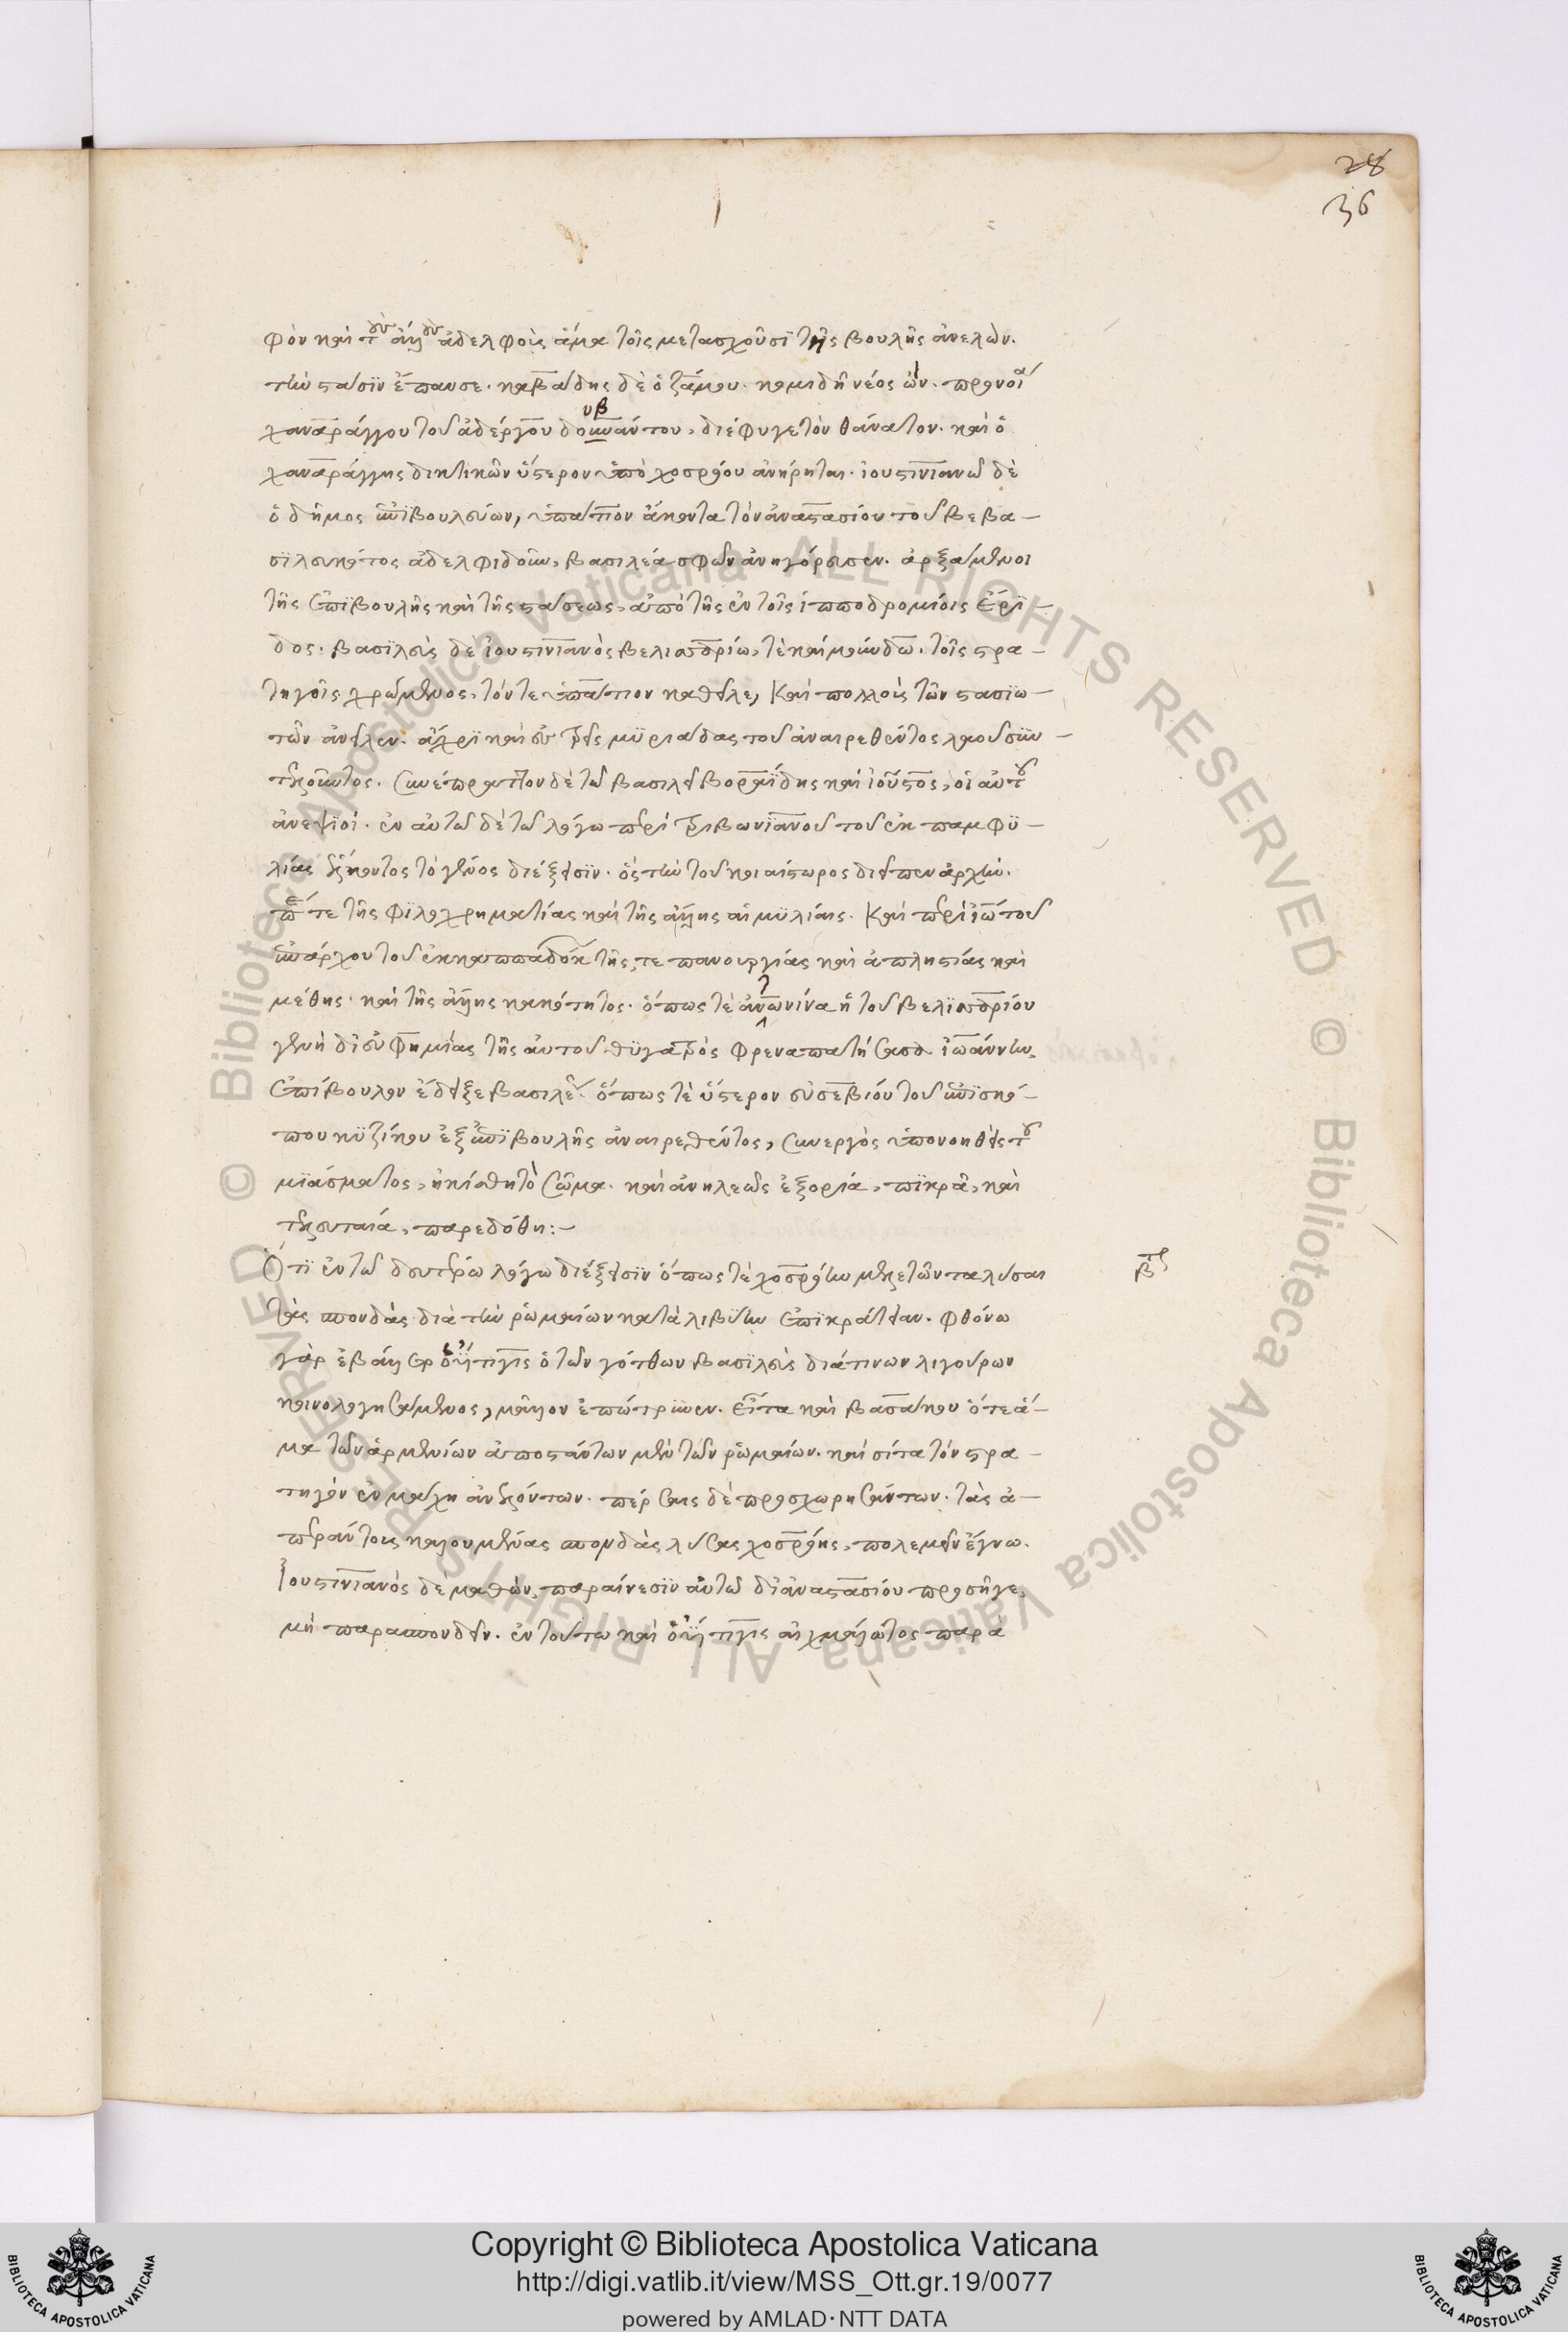 28
36
φὸν καὶ τοὺς ἄλλους ἀδελφοὺς ἅμα τοῖς μετασχοῦσι τῆς βουλῆς ἀνελὼν.
τὴν στάσιν ἔπαυσε. καβάδης δὲ ὁ ζάμου. κομιδῆ νέος ὢν. προνοία
χαναράγγου τοῦ ἀδέργου δουναντου, διέφυγε τὸν θάνατον. καὶ ὁ
χαναράγγης δικτικῶν ὕστερον ὑπὸ χοσρόου ἀνήρηται. ἰουστινιανῶ δὲ
ὁ δῆμος ἐπιβουλεύων, ὑπάτιον ἄκοντα τὸν ἀναστασίου τοῦ βεβα-
σιλευκότος ἀδελφιδοῦν, βασιλέα σφῶν ἀνηγόρευσεν. ἀρξάμενοι
τῆς ἐπιβουλῆς καὶ τῆς στάσεως, ἀπὸ τῆς ἐν τοῖς ἱπποδρομίοις ἔρι-
δος. βασιλεὺς δὲ ἰουστινιανὸς βελισαρίω, τὲ καὶ μούνδω. τοῖς στρα-
τηγοῖς χρώμενος, τόν τε ὑπάτιον καθεῖλε, καὶ πολλοὺς τῶν στασιω-
τῶν ἀνεῖλεν. ἄχρι καὶ εἰς τρεῖς μυριάδας τοῦ ἀναιρεθέντος λαοῦ συν-
τελοῦντος. συνέπραττον δὲ τῶ βασιλεῖ βοραΐδης καὶ ἰοῦστος, οἱ αὐτοῦ
ἀνεψιοί. ἐν αὐτῶ δὲ τῶ λόγω περὶ τριβωνιανοῦ τοῦ ἐκ παμφυ-
λίας ἕλκοντος τὸ γένος διέξεισιν. ὃς τὴν τοῦ κοιαίστωρος διεῖπεν ἀρχήν.
τε τῆς φιλοχρηματίας καὶ τῆς ἄλλης αἱμυλίας. καὶ περὶ ἰωάννου τοῦ
ὑπάρχου τοῦ ἐκ καππαδοκ τῆς, τε πανουργίας καὶ ἀπληστίας καὶ
μέθης. καὶ τῆς ἄλλης κακότητος. ὅπως τὲ ἀντωνίνα ἡ τοῦ βελισαρίου
γυνὴ δι᾽ εὐφημίας τῆς αὐτοῦ θυγατρὸς φρεναπατήσασα ἰωάννην.
ἐπίβουλον ἔδειξε βασιλεῖ. ὅπως τὲ ὕστερον εὐσεβίου τοῦ ἐπισκό-
που κυζίκου ἐξ ἐπιβουλῆς ἀναιρεθέντος, συνεργὸς ὑπονοηθεὶς τοῦ
μιάσματος, ἠκίσθη τὸ σῶμα. καὶ ἀνηλεῶς ἐξορία, πικρᾶ, καὶ
τελευταία, παρεδόθη:-
Ὅτι ἐν τῶ δευτέρω λόγω διέξεισιν ὅπως τὲ χοσρόην μὲν ζητῶντα λῦσαι
τὰς σπονδὰς διὰ τὴν ῥωμαίων κατὰ λιβύην ἐπικράτειαν. φθόνω
γὰρ ἐβάλλετο οὐίττιγις ὁ τῶν γότθων βασιλεὺς διά τινων λιγούρων
κοινολογησάμενος, μᾶλλον ἐπώτρυνεν. εἶτα καὶ βασσάκου ὅτε ἅ-
μα τῶν ἀρμενίων ἀποστάντων μὲν τῶν ῥωμαίων. καὶ σίτα τὸν στρα-
τηγὸν ἐν μάχη ἀνελόντων. πέρσαις δὲ προσχωρησάντων. τὰς ἀ-
περάντους καλουμένας σπονδὰς λύσας χοσρόης, πολεμεῖν ἔγνω.
Ἰουστινιανὸς δὲ μαθὼν, παραίνεσιν αὐτῶ δι᾽ ἀναστασίου προσῆγε,
μὴ παρασπονδεῖν. ἐν τούτω καὶ οὐίττιγις αἰχμάλωτος παρὰ
Copyright © Biblioteca Apostolica Vaticana
http://digi.vatlib.it/view/MSS_Ott.gr.19/0077
powered by AMLAD·NTT DATA